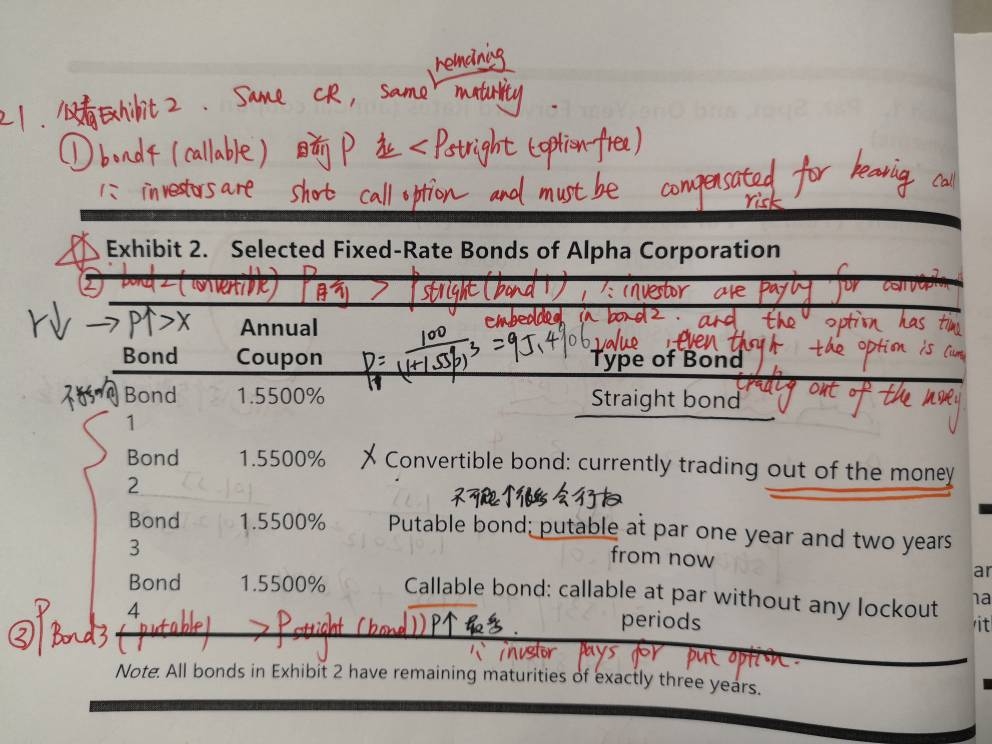 remaining
21. 仅看Exhibit 2. Same CR, same maturity.
① bond4 (callable) 目前 P < Pstright (option-free)
∵ investors are short call option and must be compensated for bearing call
risk
Exhibit 2. Selected Fixed-Rate Bonds of Alpha Corporation
② bond2 (convertible) P目前 > Pstright (bond 1), ∵ investor are paying for conversion
embedded in bond2. and the option has time
r↓ → P↑ > X
value, even though the option is
trading out of the money
P= 100/(1+1.55%)³ = 95.4906
Annual
Bond Coupon Type of Bond
Bond 1.5500% Straight bond
1
Bond 1.5500% X Convertible bond: currently trading out of the money
2
Bond 1.5500% Putable bond: putable at par one year and two years
3 from now
Bond 1.5500% Callable bond: callable at par without any lockout
4 periods
③ P Bond3 (putable) > Pstright (bond1) P↑
∵ investor pays for put option.
Note. All bonds in Exhibit 2 have remaining maturities of exactly three years.